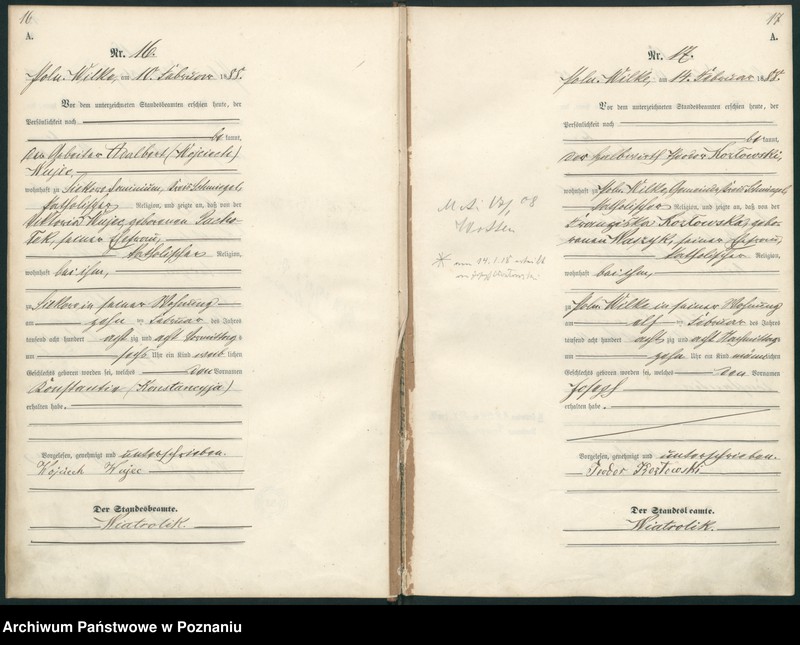 16
A.
Nr. 16.
Poln. Wilke, am 10 Februar 1888.
Vor dem unterzeichneten Standesbeamten erschien heute, der
Persönlichkeit nach
be kannt,
der Arbeiter Adalbert (Wojciech)
Wujec,
wohnhaft zu Siekowo Dominium, Kreis Schmiegel,
katholischer Religion, und zeigte an, daß von der
Viktoria Wujec geborenen Pacho-
lek, seiner Ehefrau,
katholischer Religion,
wohnhaft bei ihm,
zu Siekowo in seiner Wohnung
am zehn ten Februar des Jahres
tausend acht hundert acht zig und acht Vormittags
um sechs Uhr ein Kind weib lichen
Geschlechts geboren worden sei, welches den Vornamen
Konstantia (Konstancyja)
erhalten habe.
Vorgelesen, genehmigt und unterschrieben.
Wojciech Wujec
Der Standesbeamte.
Wiatrolik.
17
A.
Nr. 17.
Poln. Wilke, am 14. Februar 1888.
Vor dem unterzeichneten Standesbeamten erschien heute, der
Persönlichkeit nach
be kannt,
der Halbwirth Theodor Kozlowski,
wohnhaft zu Poln. Wilke Gemeinde, Kreis Schmiegel,
katholischer Religion, und zeigte an, daß von der
Franziska Kozlowska, gebo-
renen Waszyk, seiner Ehefrau,
katholischer Religion,
wohnhaft bei ihm,
zu Poln. Wilke in seiner Wohnung
am elf ten Februar des Jahres
tausend acht hundert acht zig und acht Nachmittags
um zehn Uhr ein Kind männ lichen
Geschlechts geboren worden sei, welches den Vornamen
Joseph
erhalten habe.
Vorgelesen, genehmigt und unterschrieben.
Teodor Kozłowski
Der Standesbeamte.
Wiatrolik.
Archiwum Państwowe w Poznaniu